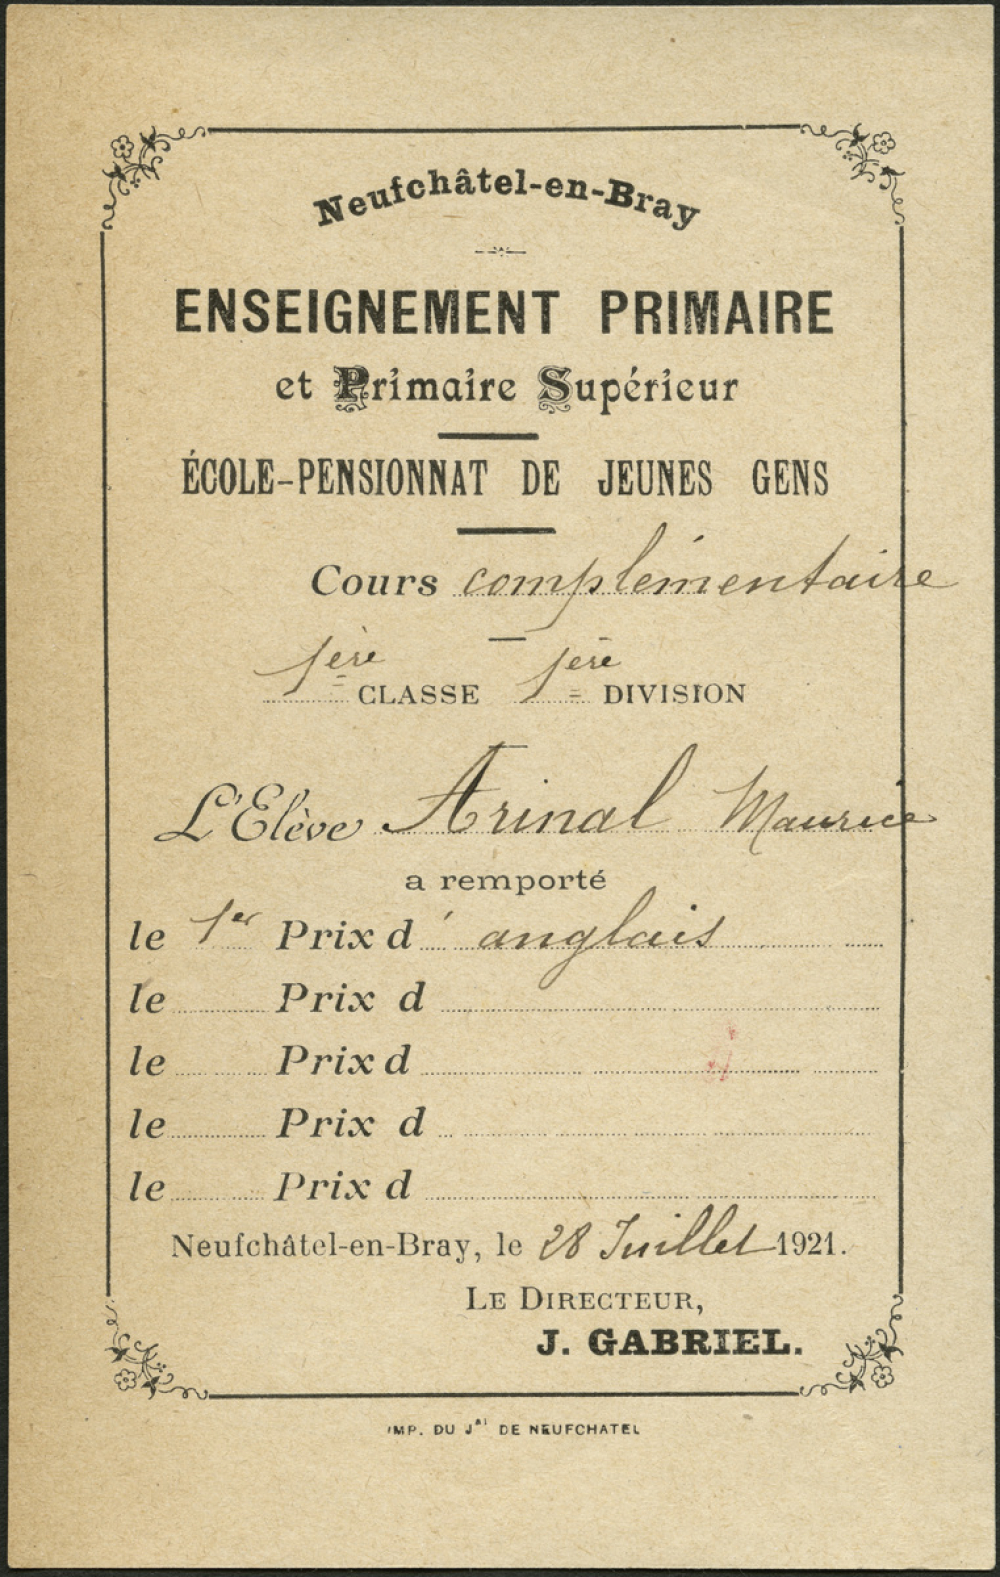 Neufchâtel-en-Bray
ENSEIGNEMENT PRIMAIRE
et Primaire Supérieur
ÉCOLE-PENSIONNAT DE JEUNES GENS
Cours complémentaire
1ère CLASSE 1ère DIVISION
L'Elève Arinal Maurice
a remporté
le 1er Prix d' anglais
le Prix d
le Prix d
le Prix d
le Prix d
Neufchâtel-en-Bray, le 28 Juillet 1921.
LE DIRECTEUR,
J. GABRIEL.
IMP. DU Jal DE NEUFCHATEL